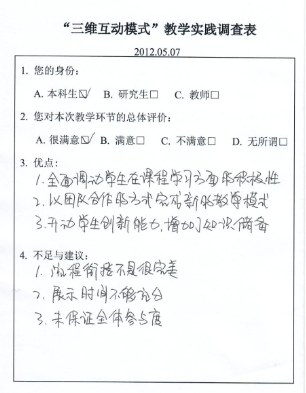 “三维互动模式”教学实践调查表
2012.05.07
1. 您的身份：
A. 本科生☑ B. 研究生□ C. 教师□
2. 您对本次教学环节的总体评价：
A. 很满意☑ B. 满意□ C. 不满意□ D. 无所谓□
3. 优点：
1. 全面调动学生在课程学习方面的积极性
2. 以团队合作的方式完成新的教学模式
3. 开动学生创新能力，增加了知识储备
4. 不足与建议：
1. 流程衔接不是很完美
2. 展示时间不够充分
3. 未保证全体参与度